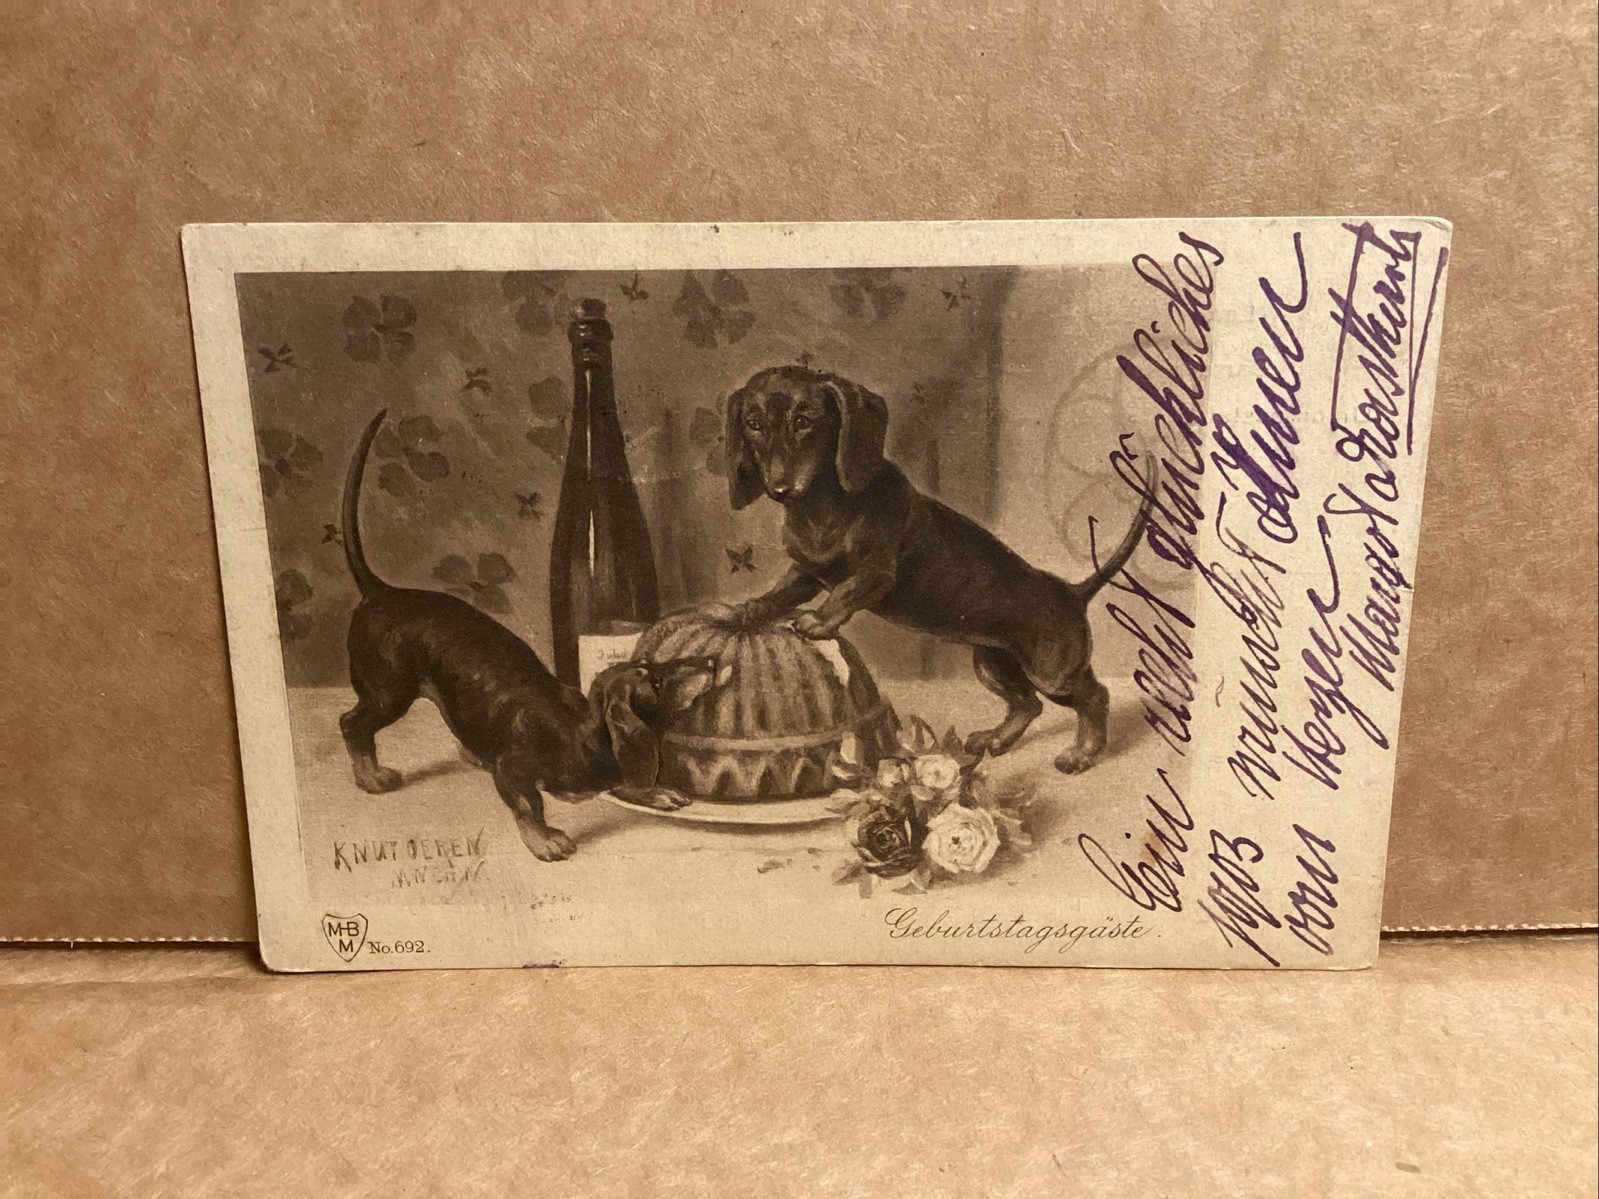 Jubi
KNUT OEREN
MNCHN.
MHB
M
No.692.
Geburtstagsgäste.
Ein recht glückliches
1903 wünscht Ihnen
von Herzen
Margot